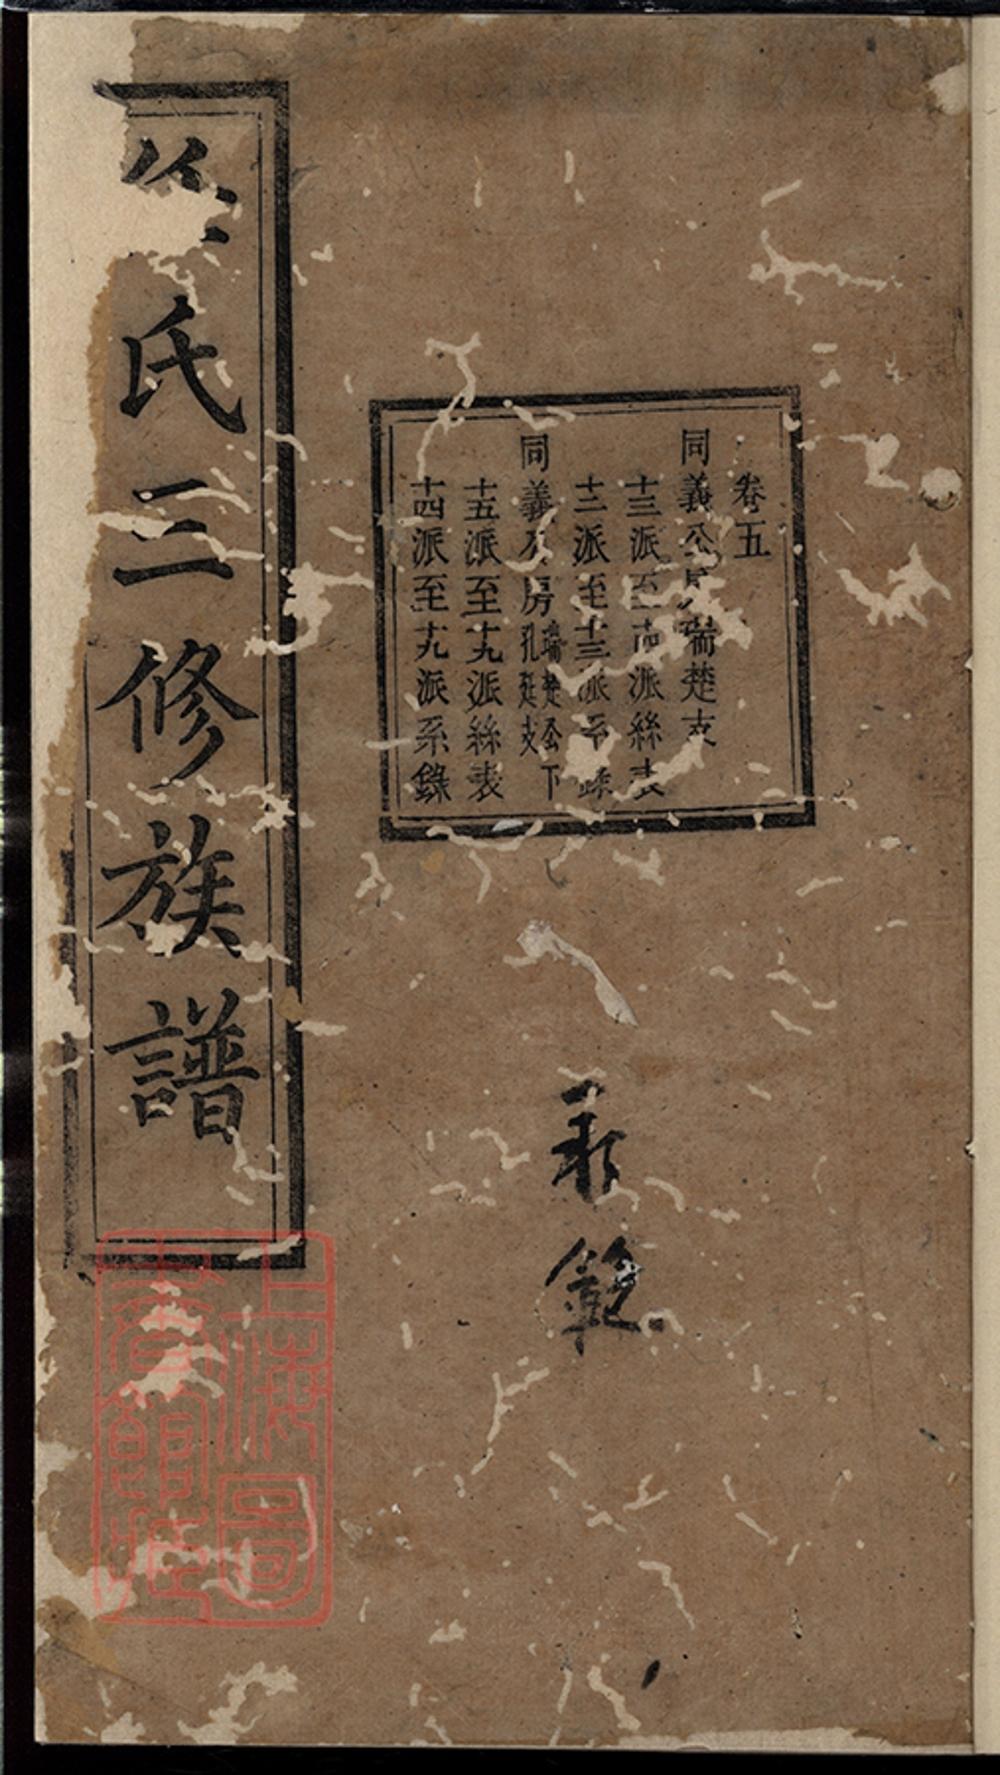 卷五
同義公房瑞楚支
十三派至十四派絲表
十二派至十三派系錄
同義公房瑞楚公下孔廷支
十五派至十九派絲表
十四派至十九派系錄
氏三修族譜
上海圖書館藏